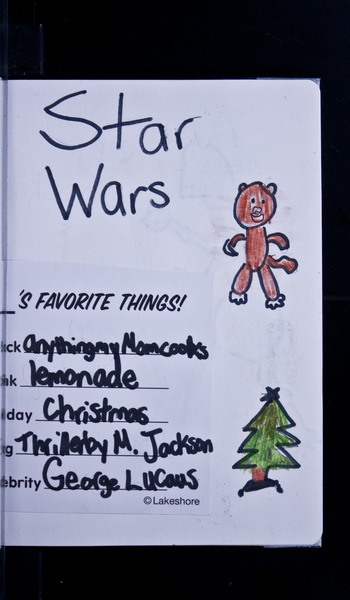 Star
Wars
'S FAVORITE THINGS!
ck anything my Mom cooks
nk lemonade
day Christmas
g Thriller by M. Jackson
ebrity George Lucaus
©Lakeshore